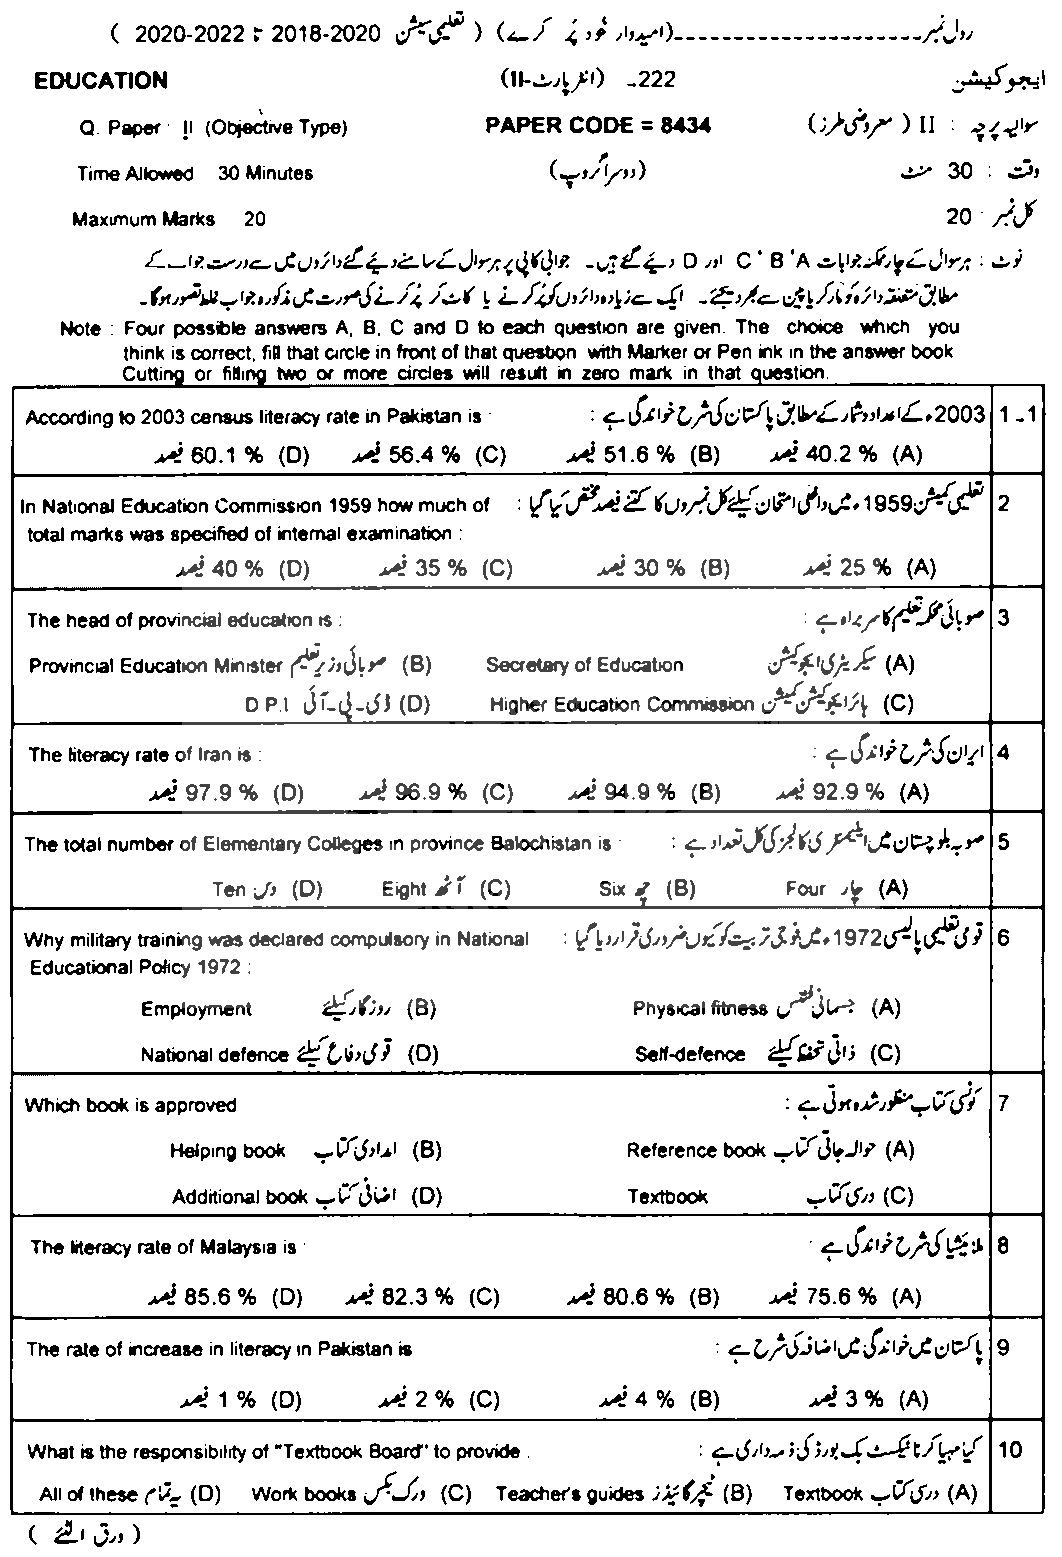 رول نمبر---------------------(امیدوار خود پُر کرے) ( تعلیمی سیشن 2020-2018 تا 2022-2020 )
ایجوکیشن 222۔ (انٹر پارٹ-II) EDUCATION
سوالیہ پرچہ : II ( معروضی طرز) PAPER CODE = 8434 Q. Paper : II (Objective Type)
وقت : 30 منٹ (دوسرا گروپ) Time Allowed 30 Minutes
کل نمبر : 20 Maximum Marks 20
نوٹ : ہر سوال کے چار ممکنہ جوابات A ' B ' C اور D دیئے گئے ہیں۔ جوابی کاپی پر ہر سوال کے سامنے دیئے گئے دائروں میں سے درست جواب کے
مطابق متعلقہ دائرہ کو مارکر یا پین سے بھر دیجئے۔ ایک سے زیادہ دائروں کو پُر کرنے یا کاٹ کر پُر کرنے کی صورت میں مذکورہ جواب غلط تصور ہوگا۔
Note : Four possible answers A, B, C and D to each question are given. The choice which you
think is correct, fill that circle in front of that question with Marker or Pen ink in the answer book
Cutting or filling two or more circles will result in zero mark in that question.
1۔1 2003ء کے اعداد و شمار کے مطابق پاکستان کی شرح خواندگی ہے : According to 2003 census literacy rate in Pakistan is :
(A) 40.2 % فیصد (B) 51.6 % فیصد (C) 56.4 % فیصد (D) 60.1 % فیصد
2 تعلیمی کمیشن 1959ء میں داخلی امتحان کیلئے کل نمبروں کا کتنے فیصد مختص کیا گیا : In National Education Commission 1959 how much of
total marks was specified of internal examination :
(A) 25 % فیصد (B) 30 % فیصد (C) 35 % فیصد (D) 40 % فیصد
3 صوبائی محکمہ تعلیم کا سربراہ ہے : The head of provincial education is :
(A) سیکریٹری ایجوکیشن Secretary of Education (B) صوبائی وزیر تعلیم Provincial Education Minister
(C) ہائر ایجوکیشن کمیشن Higher Education Commission (D) ڈی-پی-آئی D.P.I
4 ایران کی شرح خواندگی ہے : The literacy rate of Iran is :
(A) 92.9 % فیصد (B) 94.9 % فیصد (C) 96.9 % فیصد (D) 97.9 % فیصد
5 صوبہ بلوچستان میں ایلیمنٹری کالجز کی کل تعداد ہے : The total number of Elementary Colleges in province Balochistan is :
(A) چار Four (B) چھ Six (C) آٹھ Eight (D) دس Ten
6 قومی تعلیمی پالیسی 1972ء میں فوجی تربیت کو کیوں ضروری قرار دیا گیا : Why military training was declared compulsory in National
Educational Policy 1972 :
(A) جسمانی فٹنس Physical fitness (B) روزگار کیلئے Employment
(C) ذاتی تحفظ کیلئے Self-defence (D) قومی دفاع کیلئے National defence
7 کونسی کتاب منظور شدہ ہوتی ہے : Which book is approved
(A) حوالہ جاتی کتاب Reference book (B) امدادی کتاب Helping book
(C) درسی کتاب Textbook (D) اضافی کتاب Additional book
8 ملائیشیا کی شرح خواندگی ہے : The literacy rate of Malaysia is :
(A) 75.6 % فیصد (B) 80.6 % فیصد (C) 82.3 % فیصد (D) 85.6 % فیصد
9 پاکستان میں خواندگی میں اضافہ کی شرح ہے : The rate of increase in literacy in Pakistan is
(A) 3 % فیصد (B) 4 % فیصد (C) 2 % فیصد (D) 1 % فیصد
10 کیا مہیا کرنا ٹیکسٹ بک بورڈ کی ذمہ داری ہے : What is the responsibility of "Textbook Board" to provide .
(A) درسی کتاب Textbook (B) ٹیچر گائیڈز Teacher's guides (C) ورک بکس Work books (D) یہ تمام All of these
( ورق الٹئے )